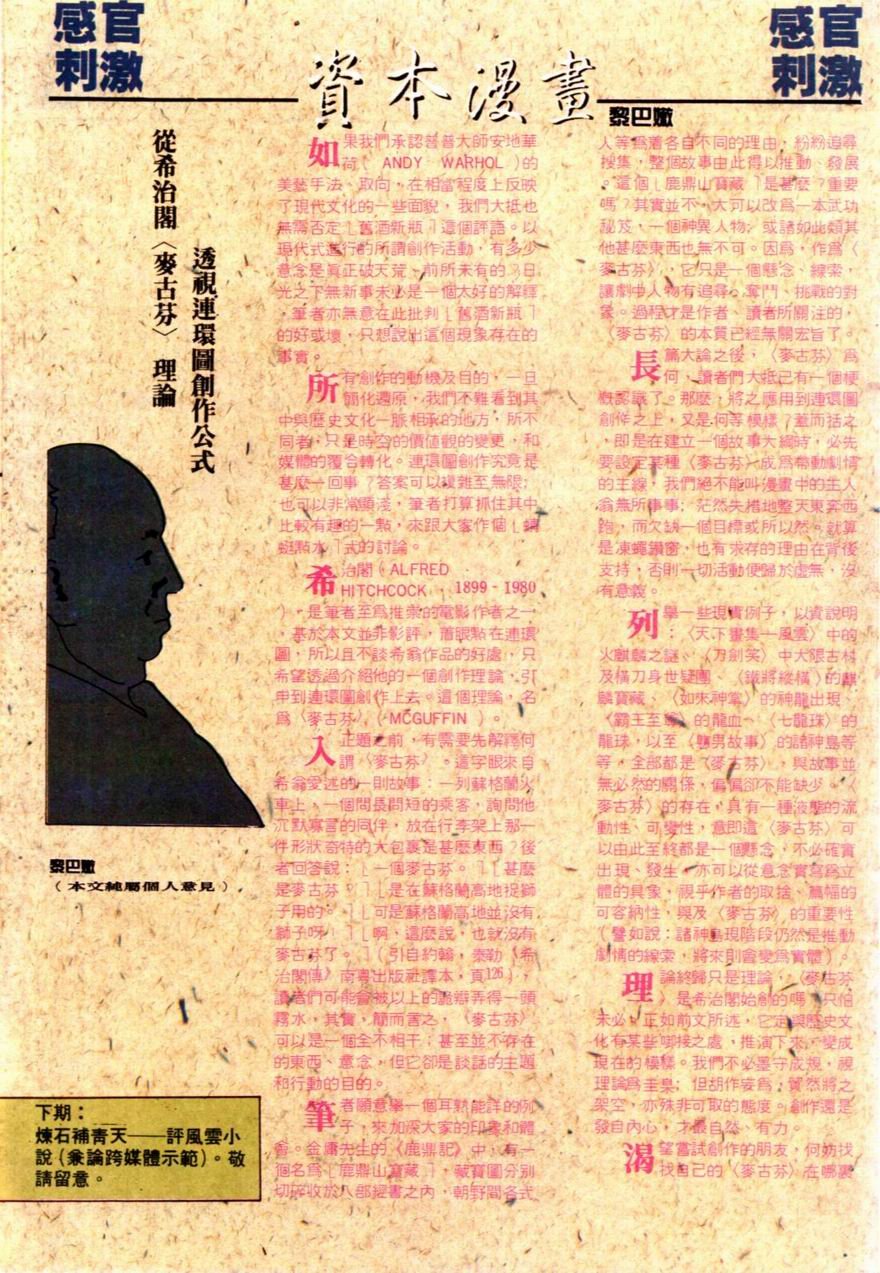 感官
刺激
資本漫畫
感官
刺激
黎巴嫩
從希治閣〈麥古芬〉理論
透視連環圖創作公式
如果我們承認普普大師安地華
荷（ANDY WARHOL）的
美藝手法、取向，在相當程度上反映
了現代文化的一些面貌，我們大抵也
無需否定「舊酒新瓶」這個評語。以
現代式進行的所謂創作活動，有多少
意念是眞正破天荒、前所未有的？日
光之下無新事未必是一個太好的解釋
，筆者亦無意在此批判「舊酒新瓶」
的好或壞，只想說出這個現象存在的
事實。
所有創作的動機及目的，一旦
簡化還原，我們不難看到其
中與歷史文化一脈相承的地方，所不
同者，只是時空的價値觀的變更，和
媒體的覆合轉化。連環圖創作究竟是
甚麼一回事？答案可以複雜至無限；
也可以非常顯淺，筆者打算抓住其中
比較有趣的一點，來跟大家作個「蜻
蜓點水」式的討論。
希治閣（ALFRED
HITCHCOCK 1899-1980
），是筆者至爲推崇的電影作者之一
，基於本文並非影評，着眼點在連環
圖，所以且不談希翁作品的好處，只
希望透過介紹他的一個創作理論，引
申到連環圖創作上去。這個理論，名
爲〈麥古芬〉（MCGUFFIN）。
入正題之前，有需要先解釋何
謂〈麥古芬〉。這字眼來自
希翁愛述的一則故事：一列蘇格蘭火
車上，一個問長問短的乘客，詢問他
沉默寡言的同伴，放在行李架上那一
件形狀奇特的大包裹是甚麼東西？後
者回答說：「一個麥古芬。」「甚麼
是麥古芬？」「是在蘇格蘭高地捉獅
子用的。」「可是蘇格蘭高地並沒有
獅子呀！」「啊、這麼說，也就沒有
麥古芬了。」（引自約翰，泰勒《希
治閣傳》南粵出版社譯本，頁126），
讀者們可能會被以上的詭辯弄得一頭
霧水，其實，簡而言之，〈麥古芬〉
可以是一個全不相干；甚至並不存在
的東西、意念，但它卻是談話的主題
和行動的目的。
筆者願意舉一個耳熟能詳的例
子，來加深大家的印象和體
會。金庸先生的《鹿鼎記》中，有一
個名爲「鹿鼎山寶藏」，藏寶圖分別
切碎收於八部經書之內，朝野間各式
人等爲着各自不同的理由，紛紛追尋
搜集，整個故事由此得以推動、發展
。這個「鹿鼎山寶藏」是甚麼？重要
嗎？其實並不，大可以改爲一本武功
秘笈，一個神異人物；或諸如此類其
他甚麼東西也無不可。因爲，作爲〈
麥古芬〉，它只是一個懸念、線索，
讓劇中人物有追尋、奪鬥、挑戰的對
象。過程才是作者、讀者所關注的，
〈麥古芬〉的本質已經無關宏旨了。
長篇大論之後，〈麥古芬〉爲
何，讀者們大抵已有一個梗
槪認識了。那麼，將之應用到連環圖
創作之上，又是何等模樣？蓋而括之
，即是在建立一個故事大綱時，必先
要設定某種〈麥古芬〉成爲帶動劇情
的主線，我們絕不能叫漫畫中的主人
翁無所事事；茫然失措地整天東奔西
跑，而欠缺一個目標或所以然。就算
是凍蠅鑽窗，也有求存的理由在背後
支持，否則一切活動便歸於虛無，沒
有意義。
列舉一些現實例子，以資說明
：〈天下畫集—風雲〉中的
火麒麟之謎、〈刀劍笑〉中大限古村
及橫刀身世疑團、〈鐵將縱橫〉的麒
麟寶藏、〈如來神掌〉的神龍出現、
〈霸王至尊〉的龍血、〈七龍珠〉的
龍珠，以至〈醜男故事〉的諸神島等
等，全部都是〈麥古芬〉，與故事並
無必然的關係，偏偏卻不能缺少。〈
麥古芬〉的存在，具有一種液態的流
動性、可變性，意即這〈麥古芬〉可
以由此至終都是一個懸念，不必確實
出現、發生，亦可以從意念實寫爲立
體的具象，視乎作者的取捨、篇幅的
可容納性，與及〈麥古芬〉的重要性
（譬如說：諸神島現階段仍然是推動
劇情的線索，將來則會變爲實體）。
理論終歸只是理論，〈麥古芬
〉是希治閣始創的嗎？只怕
未必，正如前文所述，它定與歷史文
化有某些啣接之處，推演下來，變成
現在的模樣。我們不必墨守成規，視
理論爲圭臬；但胡作妄爲；貿然將之
架空，亦殊非可取的態度。創作還是
發自內心，才最自然、有力。
渴望嘗試創作的朋友，何妨找
找自己的〈麥古芬〉在哪裏
黎巴嫩
（本文純屬個人意見）
下期：
煉石補靑天——評風雲小
說（兼論跨媒體示範）。敬
請留意。